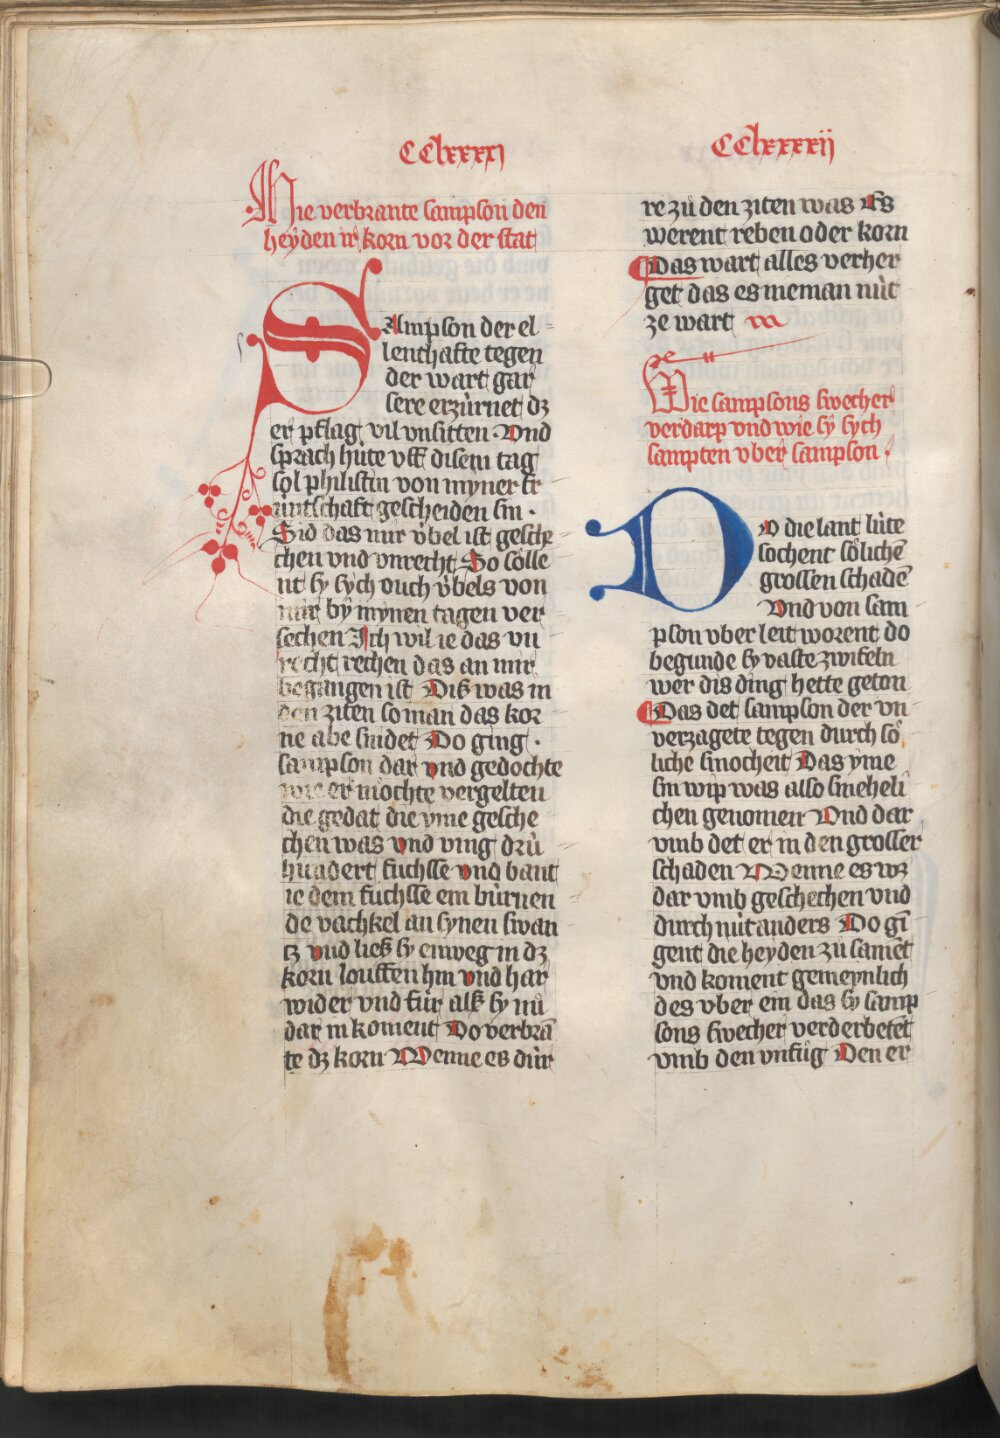 CClxxxxi
Hie verbrante sampson den
heyden ir korn vor der stat
SAmpson der el
lenthafte tegen
der wart gar
sere erzúrnet dz
er pflag vil vnsitten · Vnd
sprach húte vff disem tag
sol philistin von myner fr
úntschaft gescheiden sin ·
Sid das mir v́bel ist gesche
chen vnd vnrecht So sólle
nt sy sých ouch v́bels von
mir by mynen tagen ver
sechen Ich wil ie das vn
recht rechen das an mir
begangen ist Diß was in
den ziten so man das kor
ne abe snidet Do ging ·
sampson dar vnd gedochte
wie er móchte vergelten
die gedat die yme gesche
chen was vnd ving drú
hundert fúchsse vnd bant
ie dem fuchsse ein búrnen
de vachkel an synen swan
tz vnd ließ sy enweg in dz
korn louffen hin vnd har
wider vnd fúr alß sy nú
dar in koment Do verbrā
te dz korn Wenne es dúr
CClxxxxii
re zú den ziten was Es
werent reben oder korn
Das wart alles verher
get das es nieman nút
ze wart
Wie sampsons swecher
verdarp vnd wie sý sých
sampten vber sampson ·
DO die lant lúte
sochent sólichē
grossen schadē
Vnd von sam
pson vber leit worent do
begunde sy vaste zwifeln
wer dis ding hette geton
Das det sampson der vn
verzagete tegen durch só
liche smocheit Das yme
sin wip was also smeheli
chen genomen Vnd dar
vmb det er in den grosser
schaden Wenne es wz
dar vmb geschechen vnd
durch nút anders Do gi
gent die heyden zú samēt
vnd koment gemeynlich
des vber ein das sy samp
sons swecher verderbetēt
vmb den vnfúg Den er